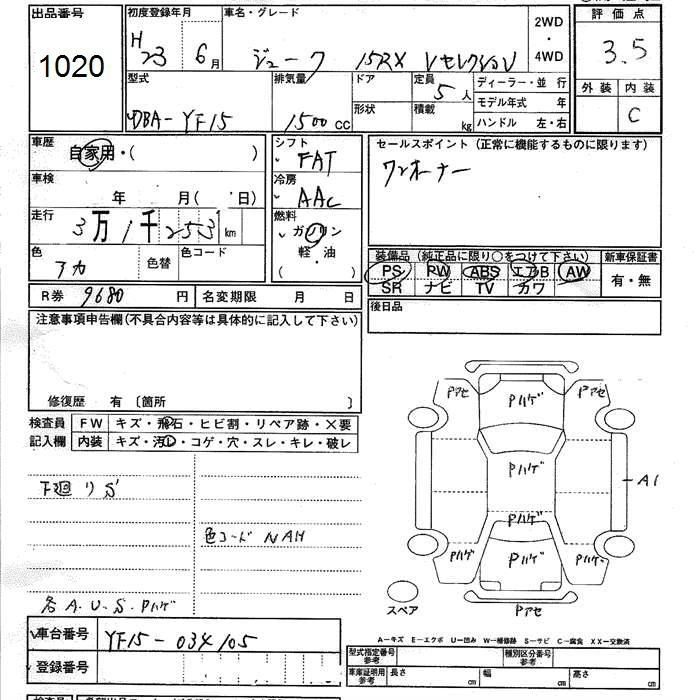 出品番号
1020
初度登録年月
H 23 6月
車名・グレード
ジューク 15RX Vセレクション
2WD
・
4WD
評価点
3.5
外装 内装
C
型式
DBA-YF15
排気量
1500cc
ドア
形状
定員
5人
積載
kg
ディーラー・並行
モデル年式 年
ハンドル 左・右
車歴
自家用・( )
シフト
FAT
セールスポイント(正常に機能するものに限ります)
ワンオーナー
車検
年 月( 日)
冷房
AAC
走行
3万1千253km
燃料
ガソリン
軽・油
( )
色
アカ
色替
色コード
装備品(純正品に限り○をつけて下さい)
PS PW ABS エアB AW
SR ナビ TV カワ
新車保証書
有・無
R券 9680円
名変期限 月 日
後日品
注意事項申告欄(不具合内容等は具体的に記入して下さい)
修復歴 有〔箇所 〕
検査員
記入欄
FW キズ・飛石・ヒビ割・リペア跡・×要
内装 キズ・汚・コゲ・穴・スレ・キレ・破レ
下廻りS
色コード NAH
各A.U.S.Pハゲ
Pアセ Pハゲ Pアセ
Pハゲ
A1
Pハゲ
Pハゲ Pハゲ Pハゲ
スペア
Pアセ
A-キズ E-エクボ U-凹み W-補修跡 S-サビ C-腐食 XX-交換済
車台番号 YF15-034105
登録番号
型式指定番号
参考
種別区分番号
参考
車庫証明用
参考
長さ cm
幅 cm
高さ cm
検査員